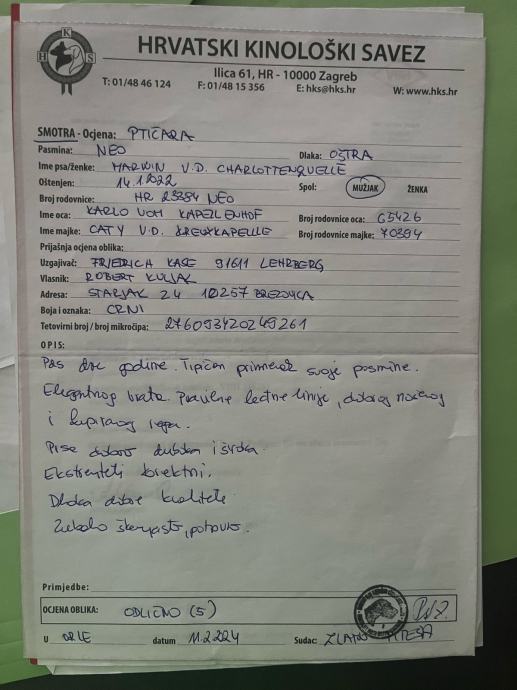 HKS
HRVATSKI KINOLOŠKI SAVEZ
Ilica 61, HR - 10000 Zagreb
T: 01/48 46 124 F: 01/48 15 356 E: hks@hks.hr W: www.hks.hr
SMOTRA - Ocjena: PTIČARA
Pasmina: NEO Dlaka: OŠTRA
Ime psa/ženke: MARWIN V.D. CHARLOTTENQUELLE
Oštenjen: 14.1.2022 Spol: MUŽJAK ŽENKA
Broj rodovnice: HR 23254 NEO
Ime oca: KARLO VOM KAPELLENHOF Broj rodovnice oca: 65426
Ime majke: CATY V.D. KREUZKAPELLE Broj rodovnice majke: 70394
Prijašnja ocjena oblika:
Uzgajivač: FRIEDRICH KASE 91611 LEHRBERG
Vlasnik: ROBERT KULJAK
Adresa: STARJAK 24 10257 BREZOVICA
Boja i oznaka: CRNI
Tetovirni broj / broj mikročipa: 276093420249261
OPIS:
Pas dvc godine. Tipičan primerak svoje pasmine.
Elegantnog vrata. Pravilne leđne linije, dobrog nošenog
i kupiranog repa.
Prsa dobro duboka i široka.
Ekstremiteti korektni.
Dlaka dobre kvalitete
Zubalo škarjasto, potpuno.
Primjedbe:
OCJENA OBLIKA: ODLIČNO (5)
U ORLE datum 11.2.2024 Sudac: ZLATKO